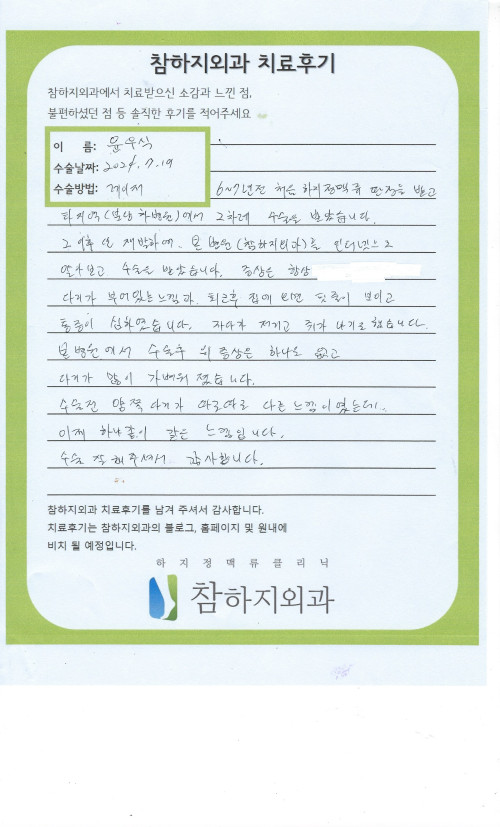 참하지외과 치료후기
참하지외과에서 치료받으신 소감과 느낀 점,
불편하셨던 점 등 솔직한 후기를 적어주세요
이 름: 윤우식
수술날짜: 2024.7.19
수술방법: 레이저
6~7년전 처음 하지정맥류 판정을 받고
타지역(일산 하병원)에서 2차례 수술을 받았습니다.
그 이후 또 재발하여. 본 병원(참하지외과)를 인터넷으로
알아보고 수술을 받았습니다. 증상은 항상
다리가 부어있는 느낌과. 퇴근후 집에 오면 핏줄이 보이고
통증이 심하였습니다. 자다가 저리고 쥐가 나기도 했습니다.
본 병원에서 수술후 위 증상은 하나도 없고
다리가 많이 가벼워 졌습니다.
수술전 양쪽 다리가 따로따로 다른 느낌이였는데..
이제 하나같이 같은 느낌입니다.
수술 잘 해주셔서 감사합니다.
참하지외과 치료후기를 남겨 주셔서 감사합니다.
치료후기는 참하지외과의 블로그, 홈페이지 및 원내에
비치 될 예정입니다.
하지정맥류클리닉
참하지외과